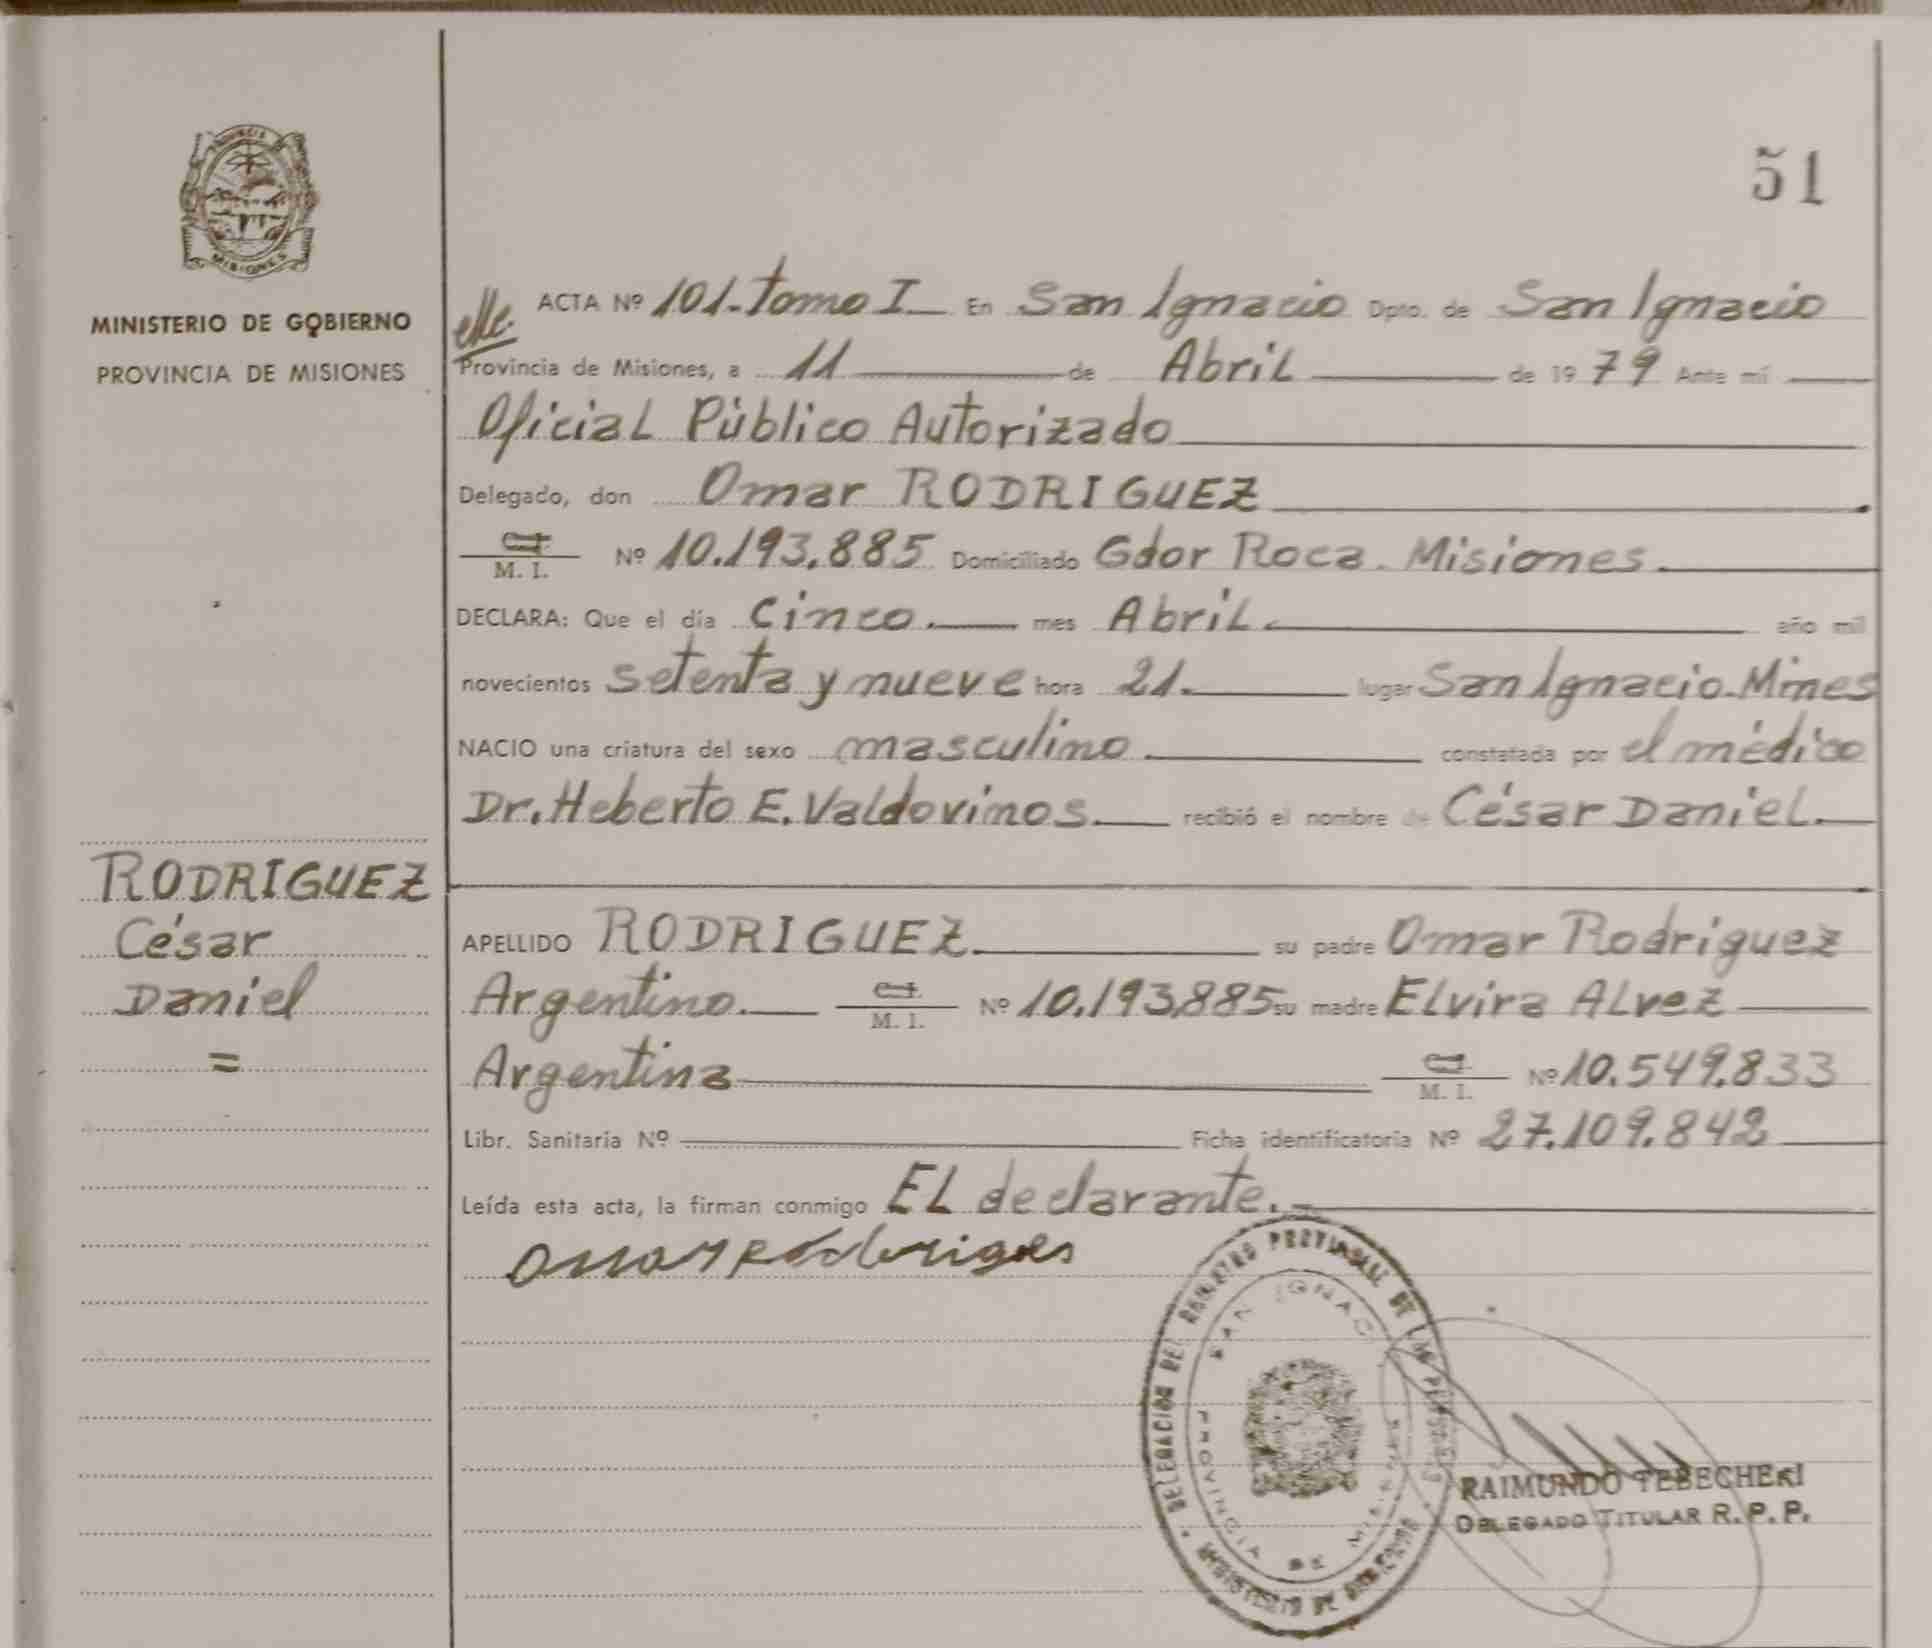 PROVINCIA
MISIONES
MINISTERIO DE GOBIERNO
PROVINCIA DE MISIONES
RODRIGUEZ
César
Daniel
=
51
ACTA Nº 101. tomo I En San Ignacio Dpto. de San Ignacio
Provincia de Misiones, a 11 de Abril de 1979 Ante mí
Oficial Público Autorizado
Delegado, don Omar RODRIGUEZ
M. I. Nº 10.193.885 Domiciliado Gdor Roca. Misiones.
DECLARA: Que el día Cinco. mes Abril. año mil
novecientos setenta y nueve hora 21. lugar San Ignacio. Mnes
NACIO una criatura del sexo masculino. constatada por el médico
Dr. Heberto E. Valdovinos. recibió el nombre de César Daniel.
APELLIDO RODRIGUEZ. su padre Omar Rodriguez
Argentino. M. I. Nº 10.193.885 su madre Elvira Alvez
Argentina M. I. Nº 10.549.833
Libr. Sanitaria Nº Ficha identificatoria Nº 27.109.842
Leída esta acta, la firman conmigo EL declarante.
DELEGACION DEL REGISTRO PROVINCIAL DE LAS PERSONAS
SAN IGNACIO
PROVINCIA DE MISIONES
MINISTERIO DE GOBIERNO
RAIMUNDO TEBECHERI
DELEGADO TITULAR R. P. P.